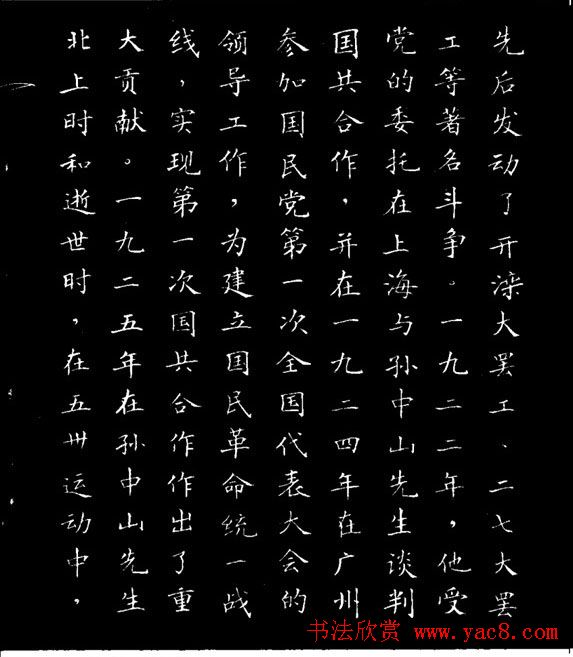 先后发动了开滦大罢工、二七大罢
工等著名斗争。一九二二年，他受
党的委托在上海与孙中山先生谈判
国共合作，并在一九二四年在广州
参加国民党第一次全国代表大会的
领导工作，为建立国民革命统一战
线，实现第一次国共合作作出了重
大贡献。一九二五年在孙中山先生
北上时和逝世时，在五卅运动中，
书法欣赏 www.yac8.com